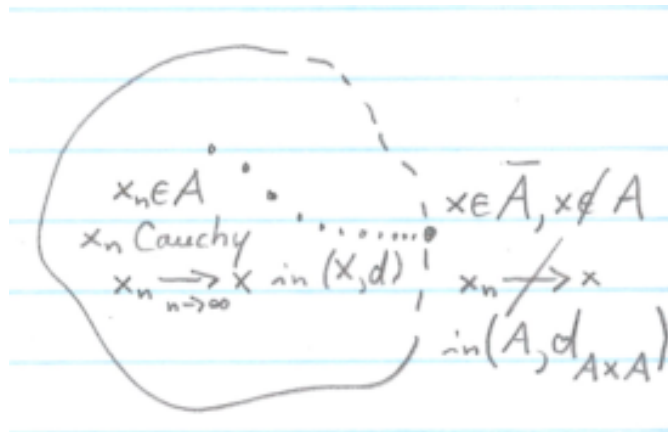 xₙ ∈ A
xₙ Cauchy
xₙ ⟶ x in (X,d)
n→∞
x ∈ A̅, x ∉ A
xₙ ↛ x
in (A, d_{A×A})